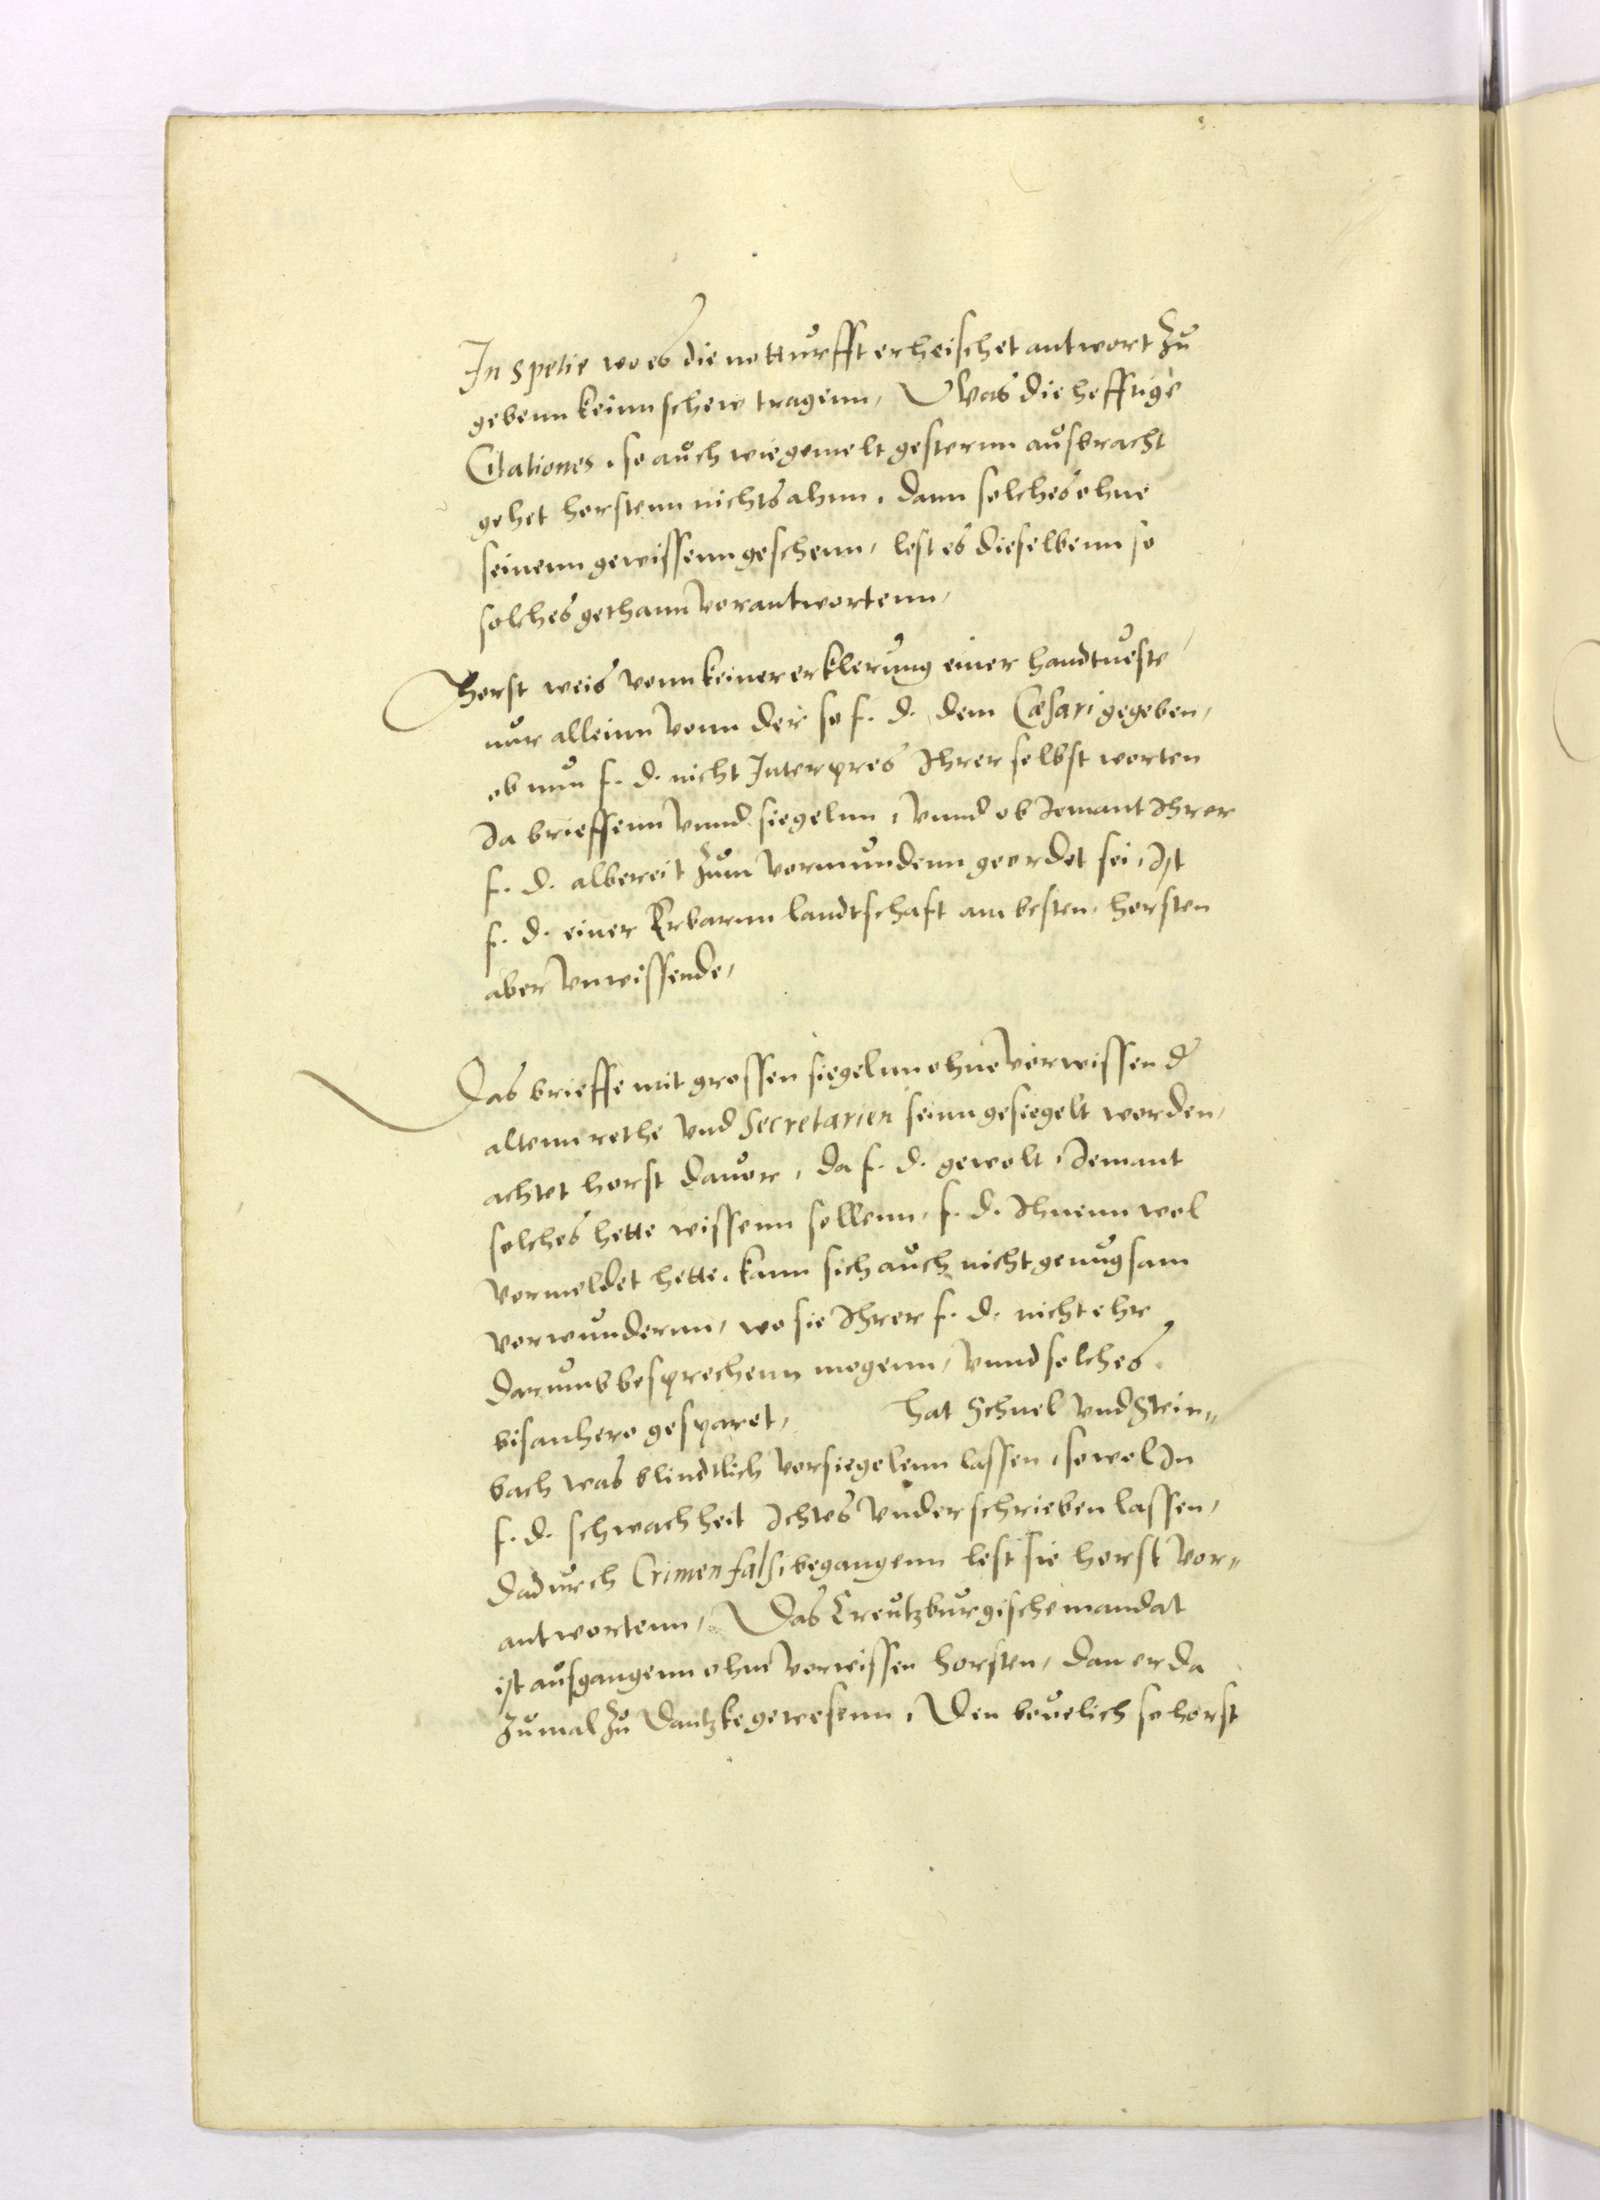 In spetie wo es die notturfft erheischet antwort zu
gebenn keinn schew tragenn, Was die hefftige
Citationes, so auch wie gemelt gesternn ausbracht
gehet horstenn nichts ahnn, dann solches ohne
seinenn gewissenn geschenn, lest es dieselbenn so
solches gethann vorantwortenn,
Horst weis vonn keiner erklerung einer handtueste
nur alleinn vonn der so f. d. dem Cæsari gegeben,
ob nun f. d. nicht Interpres Ihrer selbst worten
Ja brieffenn vnnd siegelnn, vnnd ob Jemant Ihrer
f. d. albereit zum vormundenn geordet sei, Ist
f. d. einer Erbarnn landtschaft am besten, horsten
aber vnwissende,
Das brieffe mit grossen siegelnn ohne vorwissen d
altenn rethe vnd Secretarien seinn gesiegelt worden,
achtet horst dauor, da f. d. gewolt, Jemant
solches hette wissenn sollenn, f. d. Ihnenn wol
vormeldet hette, kann sich auch nicht genugsam
vorwundernn, wo sie Ihrer f. d. nicht ehr
darumb besprechenn mogenn, vnnd solches
bisanhero gesparet, hat Schnel vnd Stein„
bach was blindtlich vorsiegelenn lassen, so wol In
f. d. schwachheit Ichtes vnderschrieben lassen,
dadurch Crimen falsi begangenn lest sie horst vor„
antwortenn, Das Creutzburgische mandat
ist ausgangenn ohne vorwissen horsten, dan er da
zumal zu Dantzke gewesenn, Den beuelich so horst